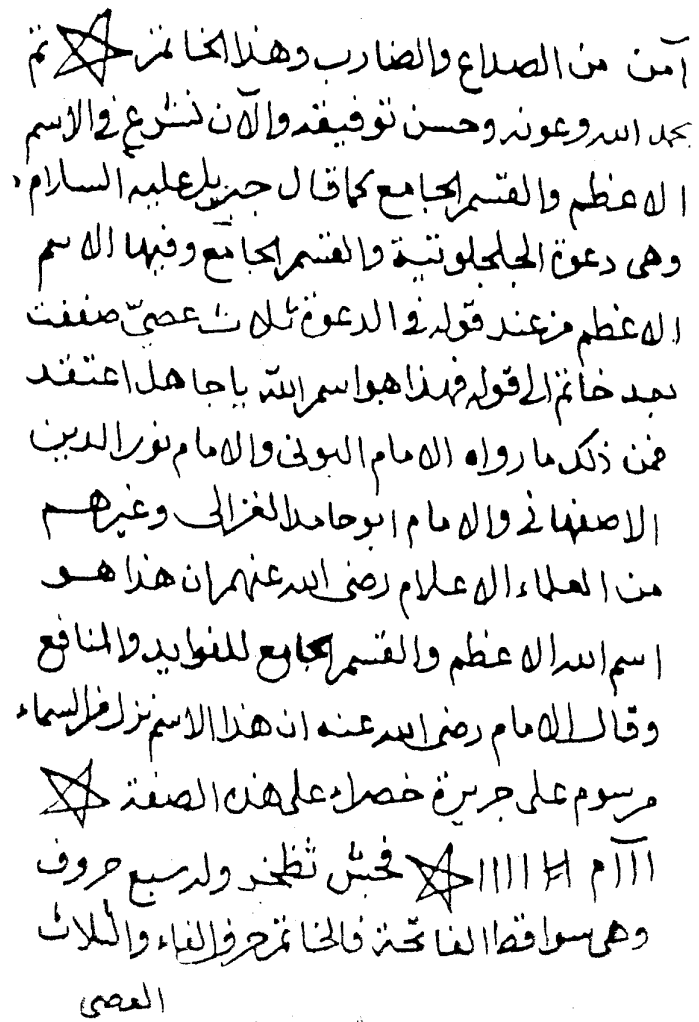 آمن من الصداع والضارب وهذا الخاتمة ⛤ تم
بحمد الله وعونه وحسن توفيقه والآن نشرع في الاسم
الاعظم والقسم الجامع كما قال جبريل عليه السلام
وهى دعوة الجلجلوتية والقسم الجامع وفيها الاسم
الاعظم من عند قوله في الدعوة ثلاث عصيّ صففت
بعد خاتم الى قوله فهذا هو اسم الله يا جاهل اعتقد
فمن ذلك ما رواه الامام البونى والامام نور الدين
الاصفهاني والامام ابو حامد الغزالى وغيرهم
من العلماء الاعلام رضى الله عنهم ان هذا هو
اسم الله الاعظم والقسم الجامع للفوايد والمنافع
وقال الامام رضى الله عنه ان هذا الاسم نزل من السماء
مرسوم على جريدة خضراء على هذه الصفة ⛤
ااآم # اااا ⛤ فجش ثظخز وله سبع حروف
وهى سواقط الفاتحة فالخاتم حرف الفاء والثلاث
العصى